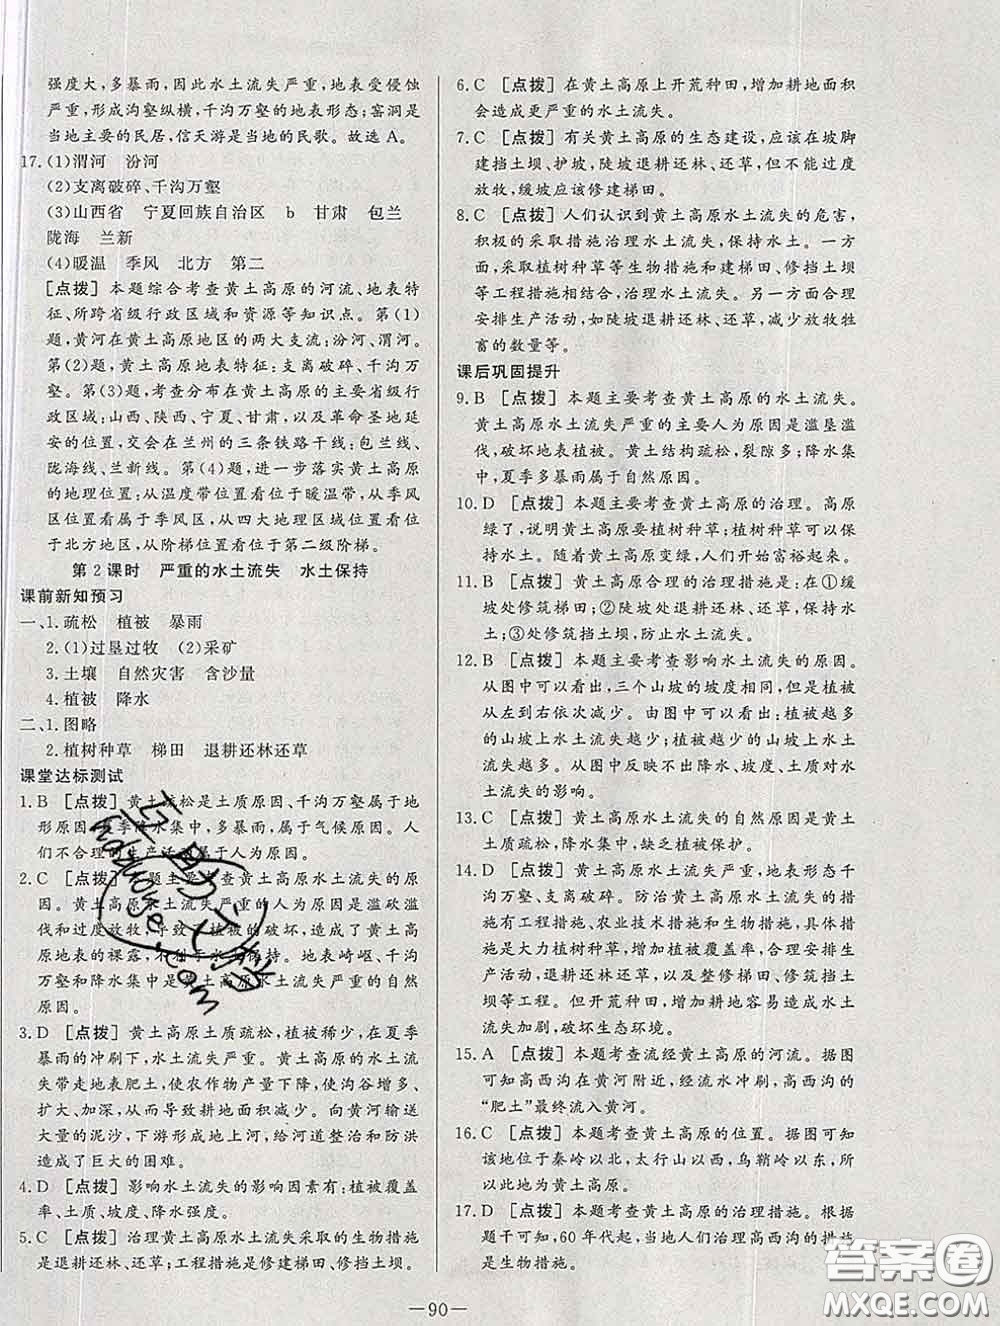 强度大,多暴雨,因此水土流失严重,地表受侵蚀
严重,形成沟壑纵横,千沟万壑的地表形态;窑洞是
当地主要的民居,信天游是当地的民歌。故选 A。
17.(1)渭河 汾河
(2)支离破碎、千沟万壑
(3)山西省 宁夏回族自治区 b 甘肃 包兰
陇海 兰新
(4)暖温 季风 北方 第二
[点拨] 本题综合考查黄土高原的河流、地表特
征、所跨省级行政区域和资源等知识点。第(1)
题,黄河在黄土高原地区的两大支流:汾河、渭河。
第(2)题,黄土高原地表特征:支离破碎、千沟万
壑。第(3)题,考查分布在黄土高原的主要省级行
政区域:山西、陕西、宁夏、甘肃,以及革命圣地延
安的位置,交会在兰州的三条铁路干线:包兰线、
陇海线、兰新线。第(4)题,进一步落实黄土高原
的地理位置:从温度带位置看位于暖温带,从季风
区位置看属于季风区,从四大地理区域位置看位
于北方地区,从阶梯位置看位于第二级阶梯。
第 2 课时 严重的水土流失 水土保持
课前新知预习
一、1.疏松 植被 暴雨
2.(1)过垦过牧 (2)采矿
3.土壤 自然灾害 含沙量
4.植被 降水
二、1.图略
2.植树种草 梯田 退耕还林还草
课堂达标测试
1.B [点拨] 黄土疏松是土质原因、千沟万壑属于地
形原因,夏季降水集中,多暴雨,属于气候原因。人
们不合理的生产活动属于人为原因。
2.C [点拨] 本题主要考查黄土高原水土流失的原
因。黄土高原水土流失严重的人为原因是滥砍滥
伐和过度放牧,导致了植被的破坏,造成了黄土高
原地表的裸露,不利于水土保持。地表崎岖、千沟
万壑和降水集中是黄土高原水土流失严重的自然
原因。
3.D [点拨] 黄土高原土质疏松,植被稀少,在夏季
暴雨的冲刷下,水土流失严重。黄土高原的水土
流失带走地表肥土,使农作物产量下降,使沟谷增多、
扩大、加深,从而导致耕地面积减少。向黄河输送
大量的泥沙,下游形成地上河,给河道整治和防洪
造成了巨大的困难。
4.D [点拨] 影响水土流失的影响因素有:植被覆盖
率、土质、坡度、降水强度。
5.C [点拨] 治理黄土高原水土流失采取的生物措施
是退耕还林、还草;工程措施是修建梯田、打坝淤地。
6.C [点拨] 在黄土高原上开荒种田,增加耕地面积
会造成更严重的水土流失。
7.C [点拨] 有关黄土高原的生态建设,应该在坡脚
建挡土坝、护坡,陡坡退耕还林、还草,但不能过度
放牧,缓坡应该修建梯田。
8.C [点拨] 人们认识到黄土高原水土流失的危害,
积极的采取措施治理水土流失,保持水土。一方
面,采取植树种草等生物措施和建梯田、修挡土坝
等工程措施相结合,治理水土流失。另一方面合理
安排生产活动,如陡坡退耕还林、还草,减少放牧牲
畜的数量等。
课后巩固提升
9.B [点拨] 本题主要考查黄土高原的水土流失。
黄土高原水土流失严重的主要人为原因是滥垦滥
伐,破坏地表植被。黄土结构疏松,裂隙多;降水集
中,夏季多暴雨属于自然原因。
10.D [点拨] 本题主要考查黄土高原的治理。高原
绿了,说明黄土高原要植树种草;植树种草可以保
持水土。随着黄土高原变绿,人们开始富裕起来。
11.B [点拨] 黄土高原合理的治理措施是:在①缓
坡处修筑梯田;②陡坡处退耕还林、还草,保持水
土;③处修筑挡土坝,防止水土流失。
12.B [点拨] 本题主要考查影响水土流失的原因。
从图中可以看出,三个山坡的坡度相同,但是植被
从左到右依次减少。由图可以看出:植被越多
的山坡上水土流失越少;植被越少的山坡上水土流失越
多。从图中反映不出降水、坡度、土质对水土流
失的影响。
13.C [点拨] 黄土高原水土流失的自然原因是黄土
土质疏松,降水集中,缺乏植被保护。
14.D [点拨] 黄土高原水土流失严重,地表形态千
沟万壑、支离破碎。防治黄土高原水土流失的措
施有工程措施、农业技术措施和生物措施,具体措
施是大力植树种草,增加植被覆盖率,合理安排生
产活动,退耕还林还草,以及整修梯田、修筑挡土
坝等工程。但开荒种田,增加耕地容易造成水土
流失加剧,破坏生态环境。
15.A [点拨] 本题考查流经黄土高原的河流。据图
可知高西沟在黄河附近,经流水冲刷,高西沟的
“肥土”最终流入黄河。
16.C [点拨] 本题考查黄土高原的位置。据图可知
该地位于秦岭以北,太行山以西,乌鞘岭以东,所
以此地为黄土高原。
17.D [点拨] 本题考查黄土高原的治理措施。根据
题干可知,60 年代起,当地人们治理高西沟的措施
是生物措施。
—90—
答案圈
MXQE.COM